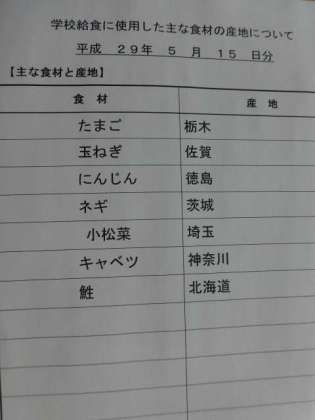 学校給食に使用した主な食材の産地について
平成 29年 5 月 15 日分
【主な食材と産地】
食 材 産 地
たまご 栃木
玉ねぎ 佐賀
にんじん 徳島
ネギ 茨城
小松菜 埼玉
キャベツ 神奈川
鮭 北海道